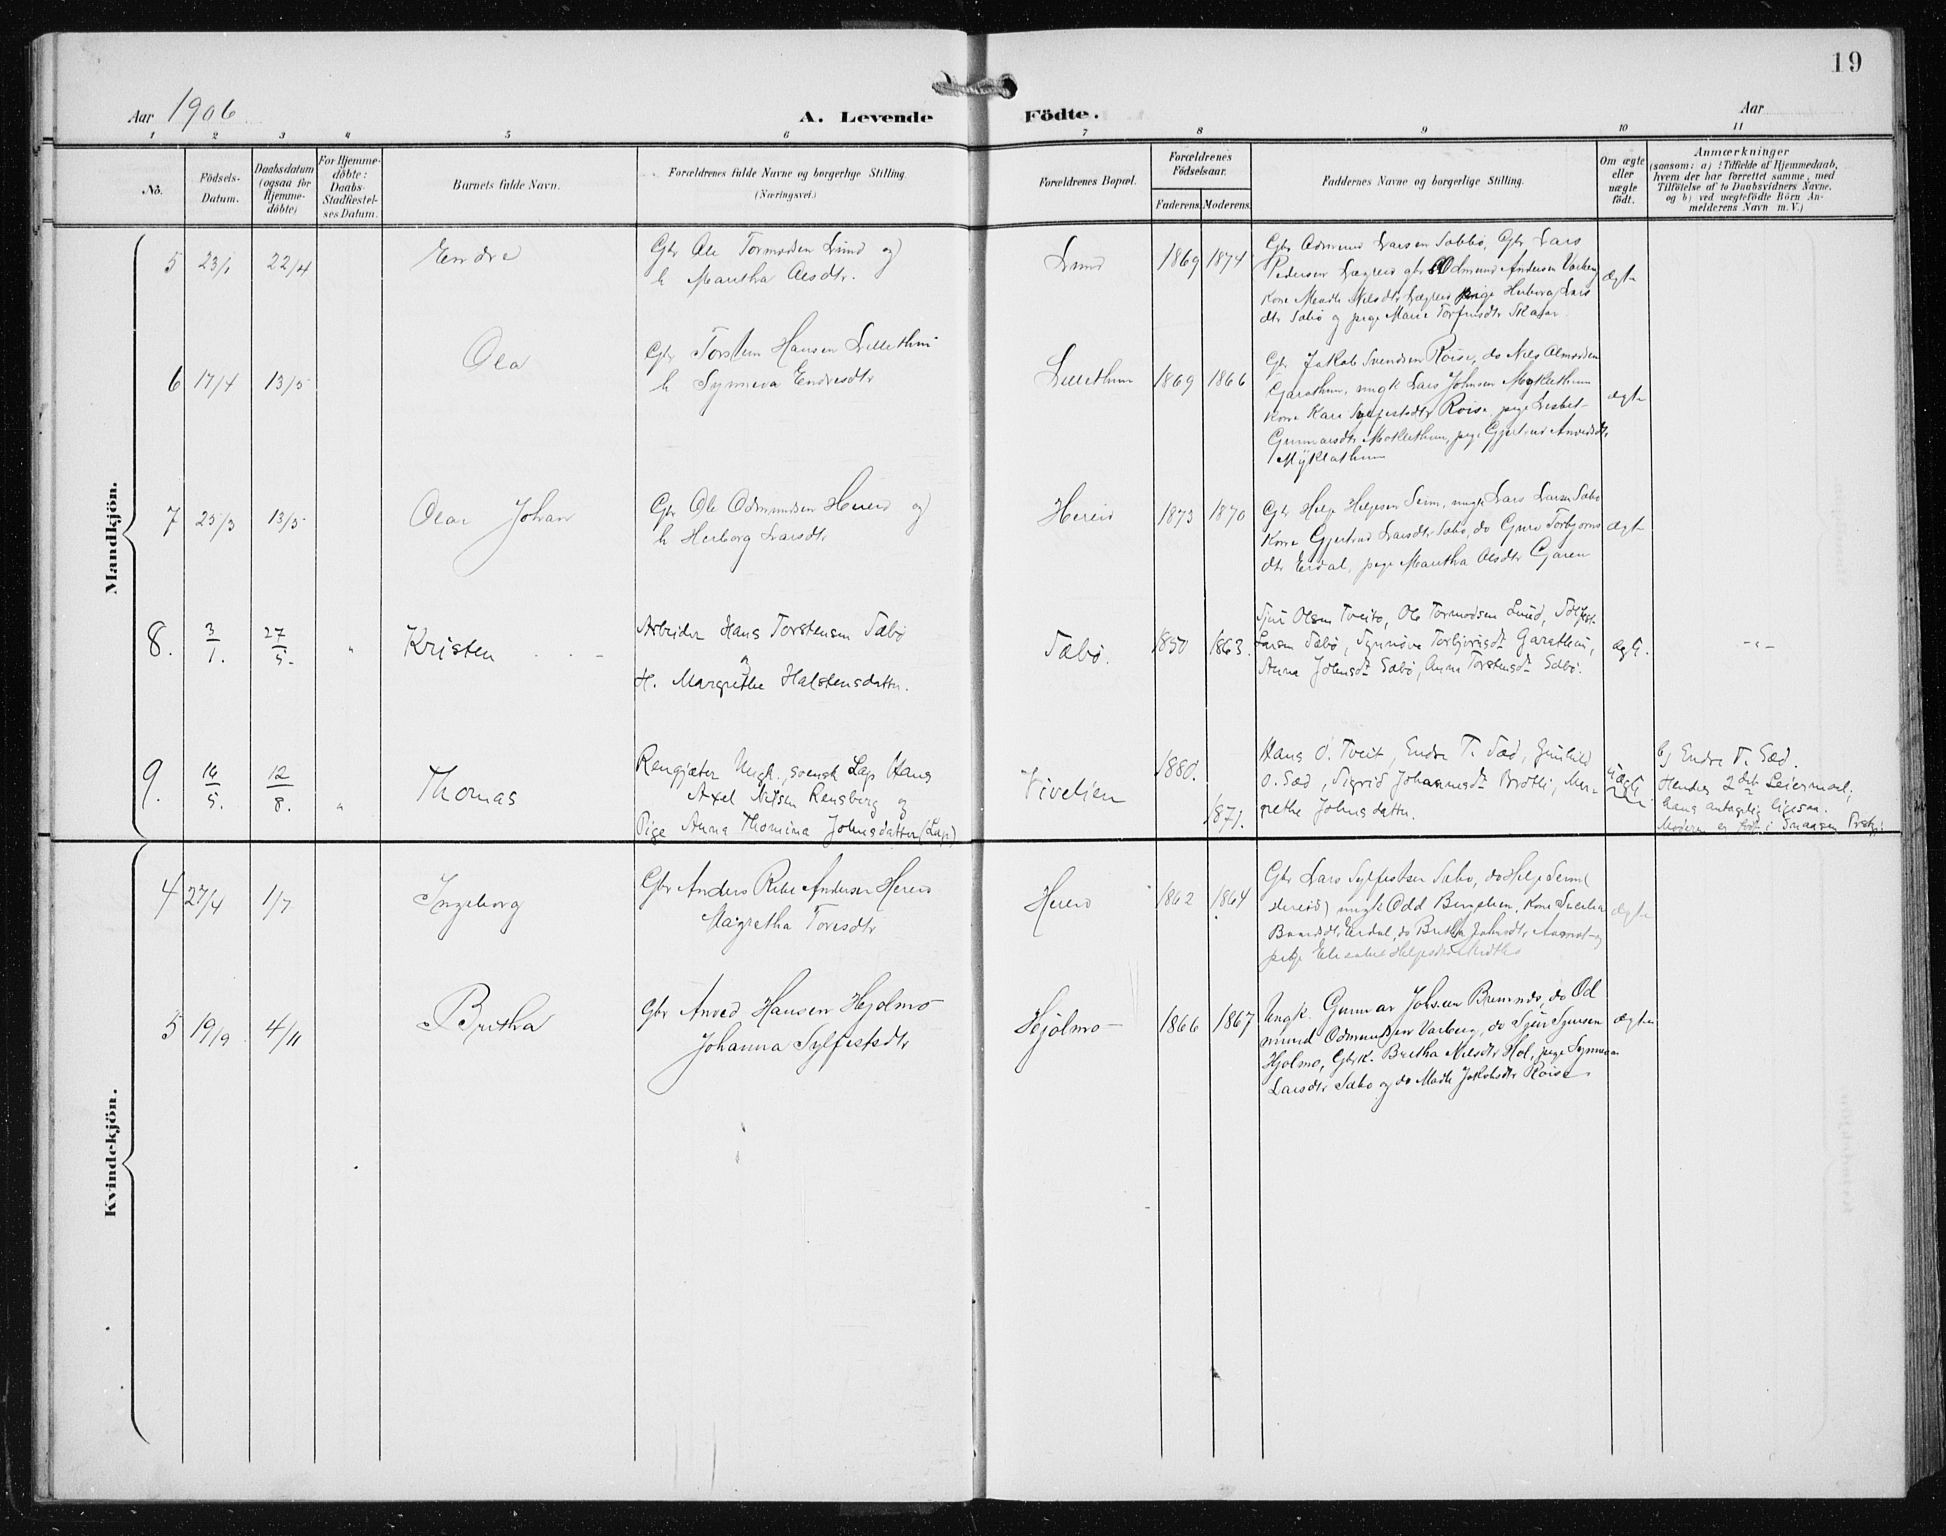 19
Aar 1906
A. Levende Födte.
Aar
1 2 3 4 5 6 7 8 9 10 11
No.
Födsels-
Datum.
Daabsdatum
(ogsaa for
Hjemme-
döbte)
For Hjemme-
döbte:
Daabs-
Stadfæstel-
ses Datum.
Barnets fulde Navn.
Forældrenes fulde Navne og borgerlige Stilling.
(Næringsvei.)
Forældrenes Bopæl.
Forældrenes
Födselsaar.
Faderens. Moderens.
Faddernes Navne og borgerlige Stilling.
Om ægte
eller
uægte
födt.
Anmærkninger
(saasom: a) i Tilfælde af Hjemmedaab,
hvem der har forrettet samme, med
Tilföielse af to Daabsvidners Navne,
og b) ved uægtefödte Börn An-
melderens Navn m. V.)
Mandkjön.
5 23/1 22/4 Endre
Gbr Ole Tormodsen Lund og
h. Maritha Olsdtr.
Lund 1869 1874
Gbr Odmund Larsen Sæbbø, Gbr Lars
Pedersen Lægreid gbr Odmund Andersen Varberg
Kone Madli Nilsdtr Lægreid pige Herborg Lars
dtr Sæbø og pige Marie Torfinsdtr
ægte
6 17/4 13/5 Ola
Gbr Torstein Hansen Lillethun
h. Synneva Endresdtr
Lillethun 1869 1866
Gbr Jakob Svendsen Røise, do Nils Olmodsen
Garathun, ungk Lars Johnsen Myklethun
Kone Kari Sylfestsdtr Røise, pige Lisbet
Gunnarsdtr Møklethun, pige Gjertrud
Myklathun
ægte
7 25/3 13/5 Olav Johan
Gbr Ole Odmundsen Hereid og
h. Herborg Larsdtr
Hereid 1873 1870
Gbr Helge Helgesen Seim, ungk Lars Larsen Sæbø
Kone Gjertrud Larsdtr Sæbø, do Guro Torbjørns
dtr Erdal, pige Maritha Olsdtr Garen
ægte
8. 3/1. 27/5. " Kristen
Arbeider Hans Torstensen Sæbø
og
H. Margrethe Halstensdatter.
Sæbø. 1850 1863.
Sjur Olsen Tveito, Ole Tormodsen Lund, Sylfest
Larsen Sæbø, Synnøve Torbjørnsdt Garathun,
Anna Johnsdt Sæbø, Anna Torstensdt Sæbø.
ægt.
-"-
9. 16/5. 12/8. " Thomas
Rengjæter Ungk., svensk Lap Hans
Axel Nilsen Rensberg og
Pige Anna Thomina Johnsdatter (Lap)
Vivelien 1880. 1871.
Hans O. Tveit, Endre T. Sæd, Gunhild
O. Sæd, Sigrid Johannesdt Brotli, Mar-
grethe Johnsdatter.
b) Endre T. Sæd.
Hendes 2det Leiermaal;
hans antagelig ligesaa.
Moderen er født i Snaasen Prstgj.
Kvindekjön.
4 27/4 1/7 Ingeborg
Gbr Anders Andersen Hereid
Magretha Toresdtr
Hereid 1862 1864
Gbr Lars Sylfestsen Sæbø, do Helge Seim
(Hereid) ungk Odd Kone Sicilia
Erdal, do Britha Johnsdtr
pige
ægte
5 19/9 4/11 Britha
Gbr Anved Hansen Hjølmo
Johanna Sylfestsdtr
Hjølmo 1866 1867
Ungk. Gunnar Johsen do Od
mund Odmundsen Varberg, do Sjur Sjursen
Hjølmo, Gbrk. Britha Nilsdtr Hol, pige Synneva
Larsdtr Sæbø og do Madli Jakobsdtr Røise
ægte